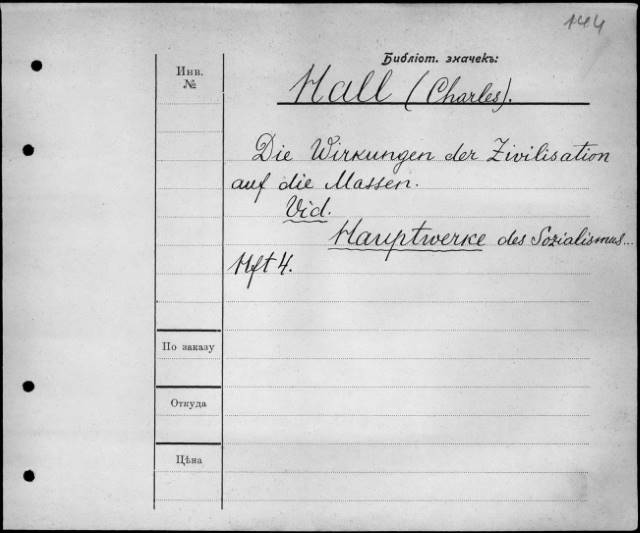 144
Библіот. значекъ:
Инв.
№
Hall (Charles).
Die Wirkungen der Zivilisation
auf die Massen.
Vid.
Hauptwerke des Sozialismus...
Hft 4.
По заказу
Откуда
Цѣна